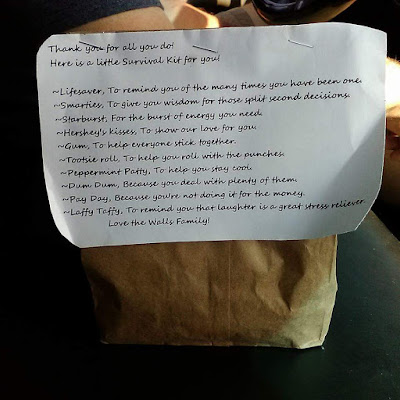 Thank you for all you do!
Here is a little Survival Kit for you!
~Lifesaver, To remind you of the many times you have been one.
~Smarties, To give you wisdom for those split second decisions.
~Starburst, For the burst of energy you need.
~Hershey's kisses, To show our love for you.
~Gum, To help everyone stick together.
~Tootsie roll, To help you roll with the punches.
~Peppermint Patty, To help you stay cool.
~Dum Dum, Because you deal with plenty of them.
~Pay Day, Because you're not doing it for the money.
~Laffy Taffy, To remind you that laughter is a great stress reliever.
Love the Walls Family!